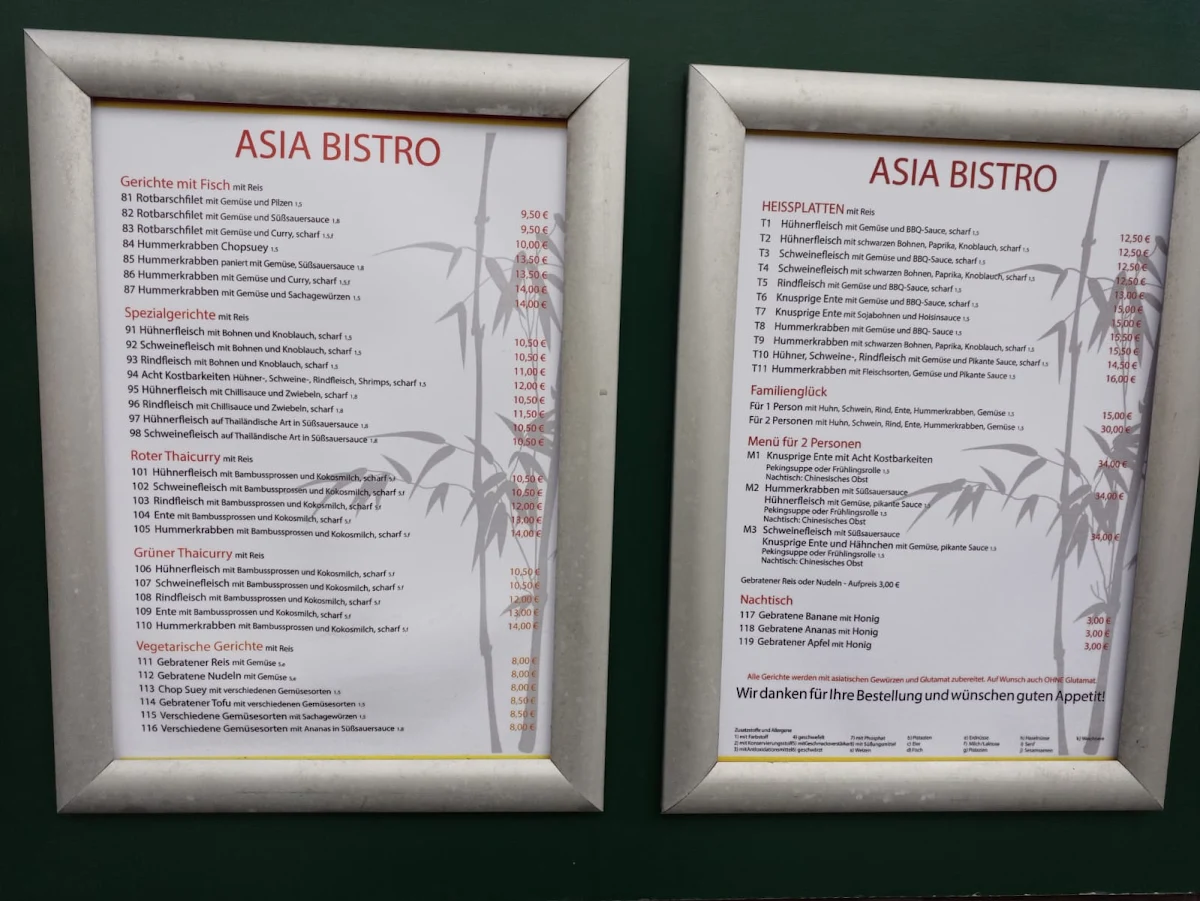 ASIA BISTRO
Gerichte mit Fisch mit Reis
81 Rotbarschfilet mit Gemüse und Pilzen 1,5 9,50 €
82 Rotbarschfilet mit Gemüse und Süßsauersauce 1,8 9,50 €
83 Rotbarschfilet mit Gemüse und Curry, scharf 1,5,f 10,00 €
84 Hummerkrabben Chopsuey 1,5 13,50 €
85 Hummerkrabben paniert mit Gemüse, Süßsauersauce 1,8 13,50 €
86 Hummerkrabben mit Gemüse und Curry, scharf 1,5,f 14,00 €
87 Hummerkrabben mit Gemüse und Sachagewürzen 1,5 14,00 €
Spezialgerichte mit Reis
91 Hühnerfleisch mit Bohnen und Knoblauch, scharf 1,5 10,50 €
92 Schweinefleisch mit Bohnen und Knoblauch, scharf 1,5 10,50 €
93 Rindfleisch mit Bohnen und Knoblauch, scharf 1,5 11,00 €
94 Acht Kostbarkeiten Hühner-, Schweine-, Rindfleisch, Shrimps, scharf 1,5 12,00 €
95 Hühnerfleisch mit Chillisauce und Zwiebeln, scharf 1,8 10,50 €
96 Rindfleisch mit Chillisauce und Zwiebeln, scharf 1,8 11,50 €
97 Hühnerfleisch auf Thailändische Art in Süßsauersauce 1,8 10,50 €
98 Schweinefleisch auf Thailändische Art in Süßsauersauce 1,8 10,50 €
Roter Thaicurry mit Reis
101 Hühnerfleisch mit Bambussprossen und Kokosmilch, scharf 5,f 10,50 €
102 Schweinefleisch mit Bambussprossen und Kokosmilch, scharf 5,f 10,50 €
103 Rindfleisch mit Bambussprossen und Kokosmilch, scharf 5,f 12,00 €
104 Ente mit Bambussprossen und Kokosmilch, scharf 5,f 13,00 €
105 Hummerkrabben mit Bambussprossen und Kokosmilch, scharf 5,f 14,00 €
Grüner Thaicurry mit Reis
106 Hühnerfleisch mit Bambussprossen und Kokosmilch, scharf 5,f 10,50 €
107 Schweinefleisch mit Bambussprossen und Kokosmilch, scharf 5,f 10,50 €
108 Rindfleisch mit Bambussprossen und Kokosmilch, scharf 5,f 12,00 €
109 Ente mit Bambussprossen und Kokosmilch, scharf 5,f 13,00 €
110 Hummerkrabben mit Bambussprossen und Kokosmilch, scharf 5,f 14,00 €
Vegetarische Gerichte mit Reis
111 Gebratener Reis mit Gemüse 5,e 8,00 €
112 Gebratene Nudeln mit Gemüse 5,e 8,00 €
113 Chop Suey mit verschiedenen Gemüsesorten 1,5 8,00 €
114 Gebratener Tofu mit verschiedenen Gemüsesorten 1,5 8,50 €
115 Verschiedene Gemüsesorten mit Sachagewürzen 1,5 8,50 €
116 Verschiedene Gemüsesorten mit Ananas in Süßsauersauce 1,8 8,00 €
ASIA BISTRO
HEISSPLATTEN mit Reis
T1 Hühnerfleisch mit Gemüse und BBQ-Sauce, scharf 1,5 12,50 €
T2 Hühnerfleisch mit schwarzen Bohnen, Paprika, Knoblauch, scharf 1,5 12,50 €
T3 Schweinefleisch mit Gemüse und BBQ-Sauce, scharf 1,5 12,50 €
T4 Schweinefleisch mit schwarzen Bohnen, Paprika, Knoblauch, scharf 1,5 12,50 €
T5 Rindfleisch mit Gemüse und BBQ-Sauce, scharf 1,5 13,00 €
T6 Knusprige Ente mit Gemüse und BBQ-Sauce, scharf 1,5 15,00 €
T7 Knusprige Ente mit Sojabohnen und Hoisinsauce 1,5 15,00 €
T8 Hummerkrabben mit Gemüse und BBQ- Sauce 1,5 15,50 €
T9 Hummerkrabben mit schwarzen Bohnen, Paprika, Knoblauch, scharf 1,5 15,50 €
T10 Hühner, Schweine-, Rindfleisch mit Gemüse und Pikante Sauce, scharf 1,5 14,50 €
T11 Hummerkrabben mit Fleischsorten, Gemüse und Pikante Sauce 1,5 16,00 €
Familienglück
Für 1 Person mit Huhn, Schwein, Rind, Ente, Hummerkrabben, Gemüse 1,5 15,00 €
Für 2 Personen mit Huhn, Schwein, Rind, Ente, Hummerkrabben, Gemüse 1,5 30,00 €
Menü für 2 Personen
M1 Knusprige Ente mit Acht Kostbarkeiten 34,00 €
Pekingsuppe oder Frühlingsrolle 1,5
Nachtisch: Chinesisches Obst
M2 Hummerkrabben mit Süßsauersauce 34,00 €
Hühnerfleisch mit Gemüse, pikante Sauce 1,5
Pekingsuppe oder Frühlingsrolle 1,5
Nachtisch: Chinesisches Obst
M3 Schweinefleisch mit Süßsauersauce 34,00 €
Knusprige Ente und Hähnchen mit Gemüse, pikante Sauce 1,5
Pekingsuppe oder Frühlingsrolle 1,5
Nachtisch: Chinesisches Obst
Gebratener Reis oder Nudeln - Aufpreis 3,00 €
Nachtisch
117 Gebratene Banane mit Honig 3,00 €
118 Gebratene Ananas mit Honig 3,00 €
119 Gebratener Apfel mit Honig 3,00 €
Alle Gerichte werden mit asiatischen Gewürzen und Glutamat zubereitet. Auf Wunsch auch OHNE Glutamat.
Wir danken für Ihre Bestellung und wünschen guten Appetit!
Zusatzstoffe und Allergene
1) mit Farbstoff 4) geschwefelt 7) mit Phosphat